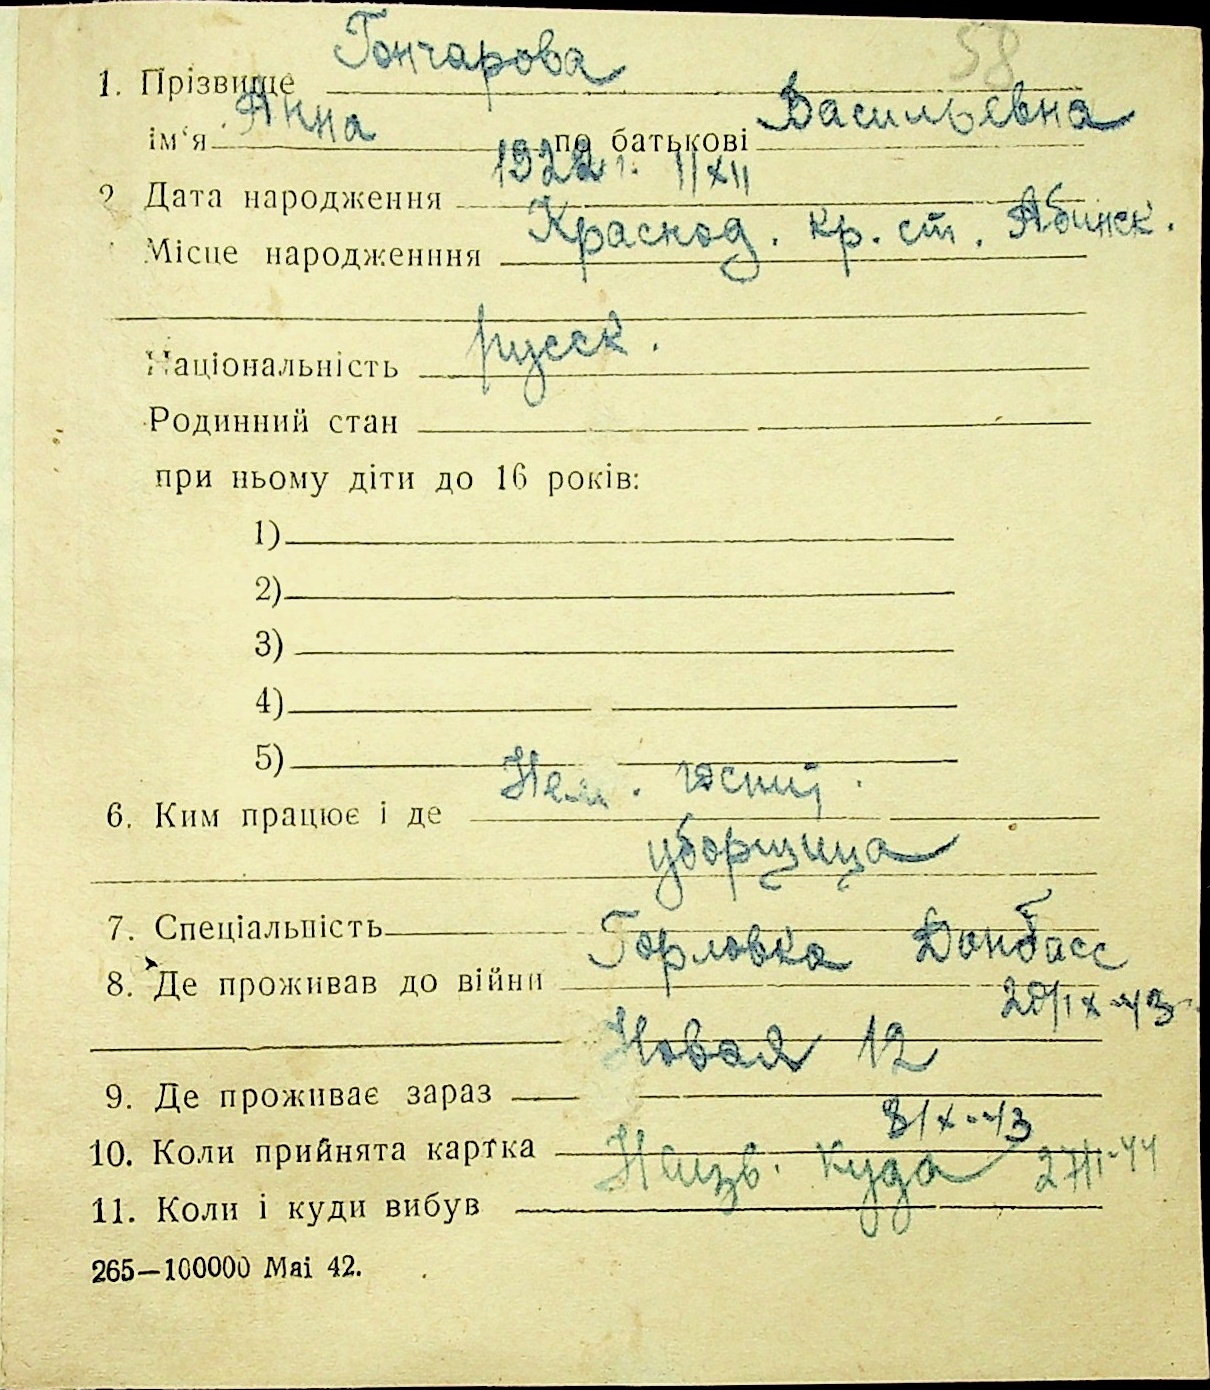 58
1. Прізвище Гончарова
ім'я Анна по батькові Васильевна
2 Дата народження 1922 г. 11/XII
Місце народженння Краснод. кр. ст. Абинск.
Національність русск.
Родинний стан
при ньому діти до 16 років:
1)
2)
3)
4)
5)
6. Ким працює і де Нем. госпит.
уборщица
7. Спеціальність
8. Де проживав до війни Горловка Донбасс
20/IX-43
9. Де проживає зараз Новая 12
10. Коли прийнята картка 8/X-43
11. Коли і куди вибув Неизв. куда 27/I-44
265—100000 Mai 42.